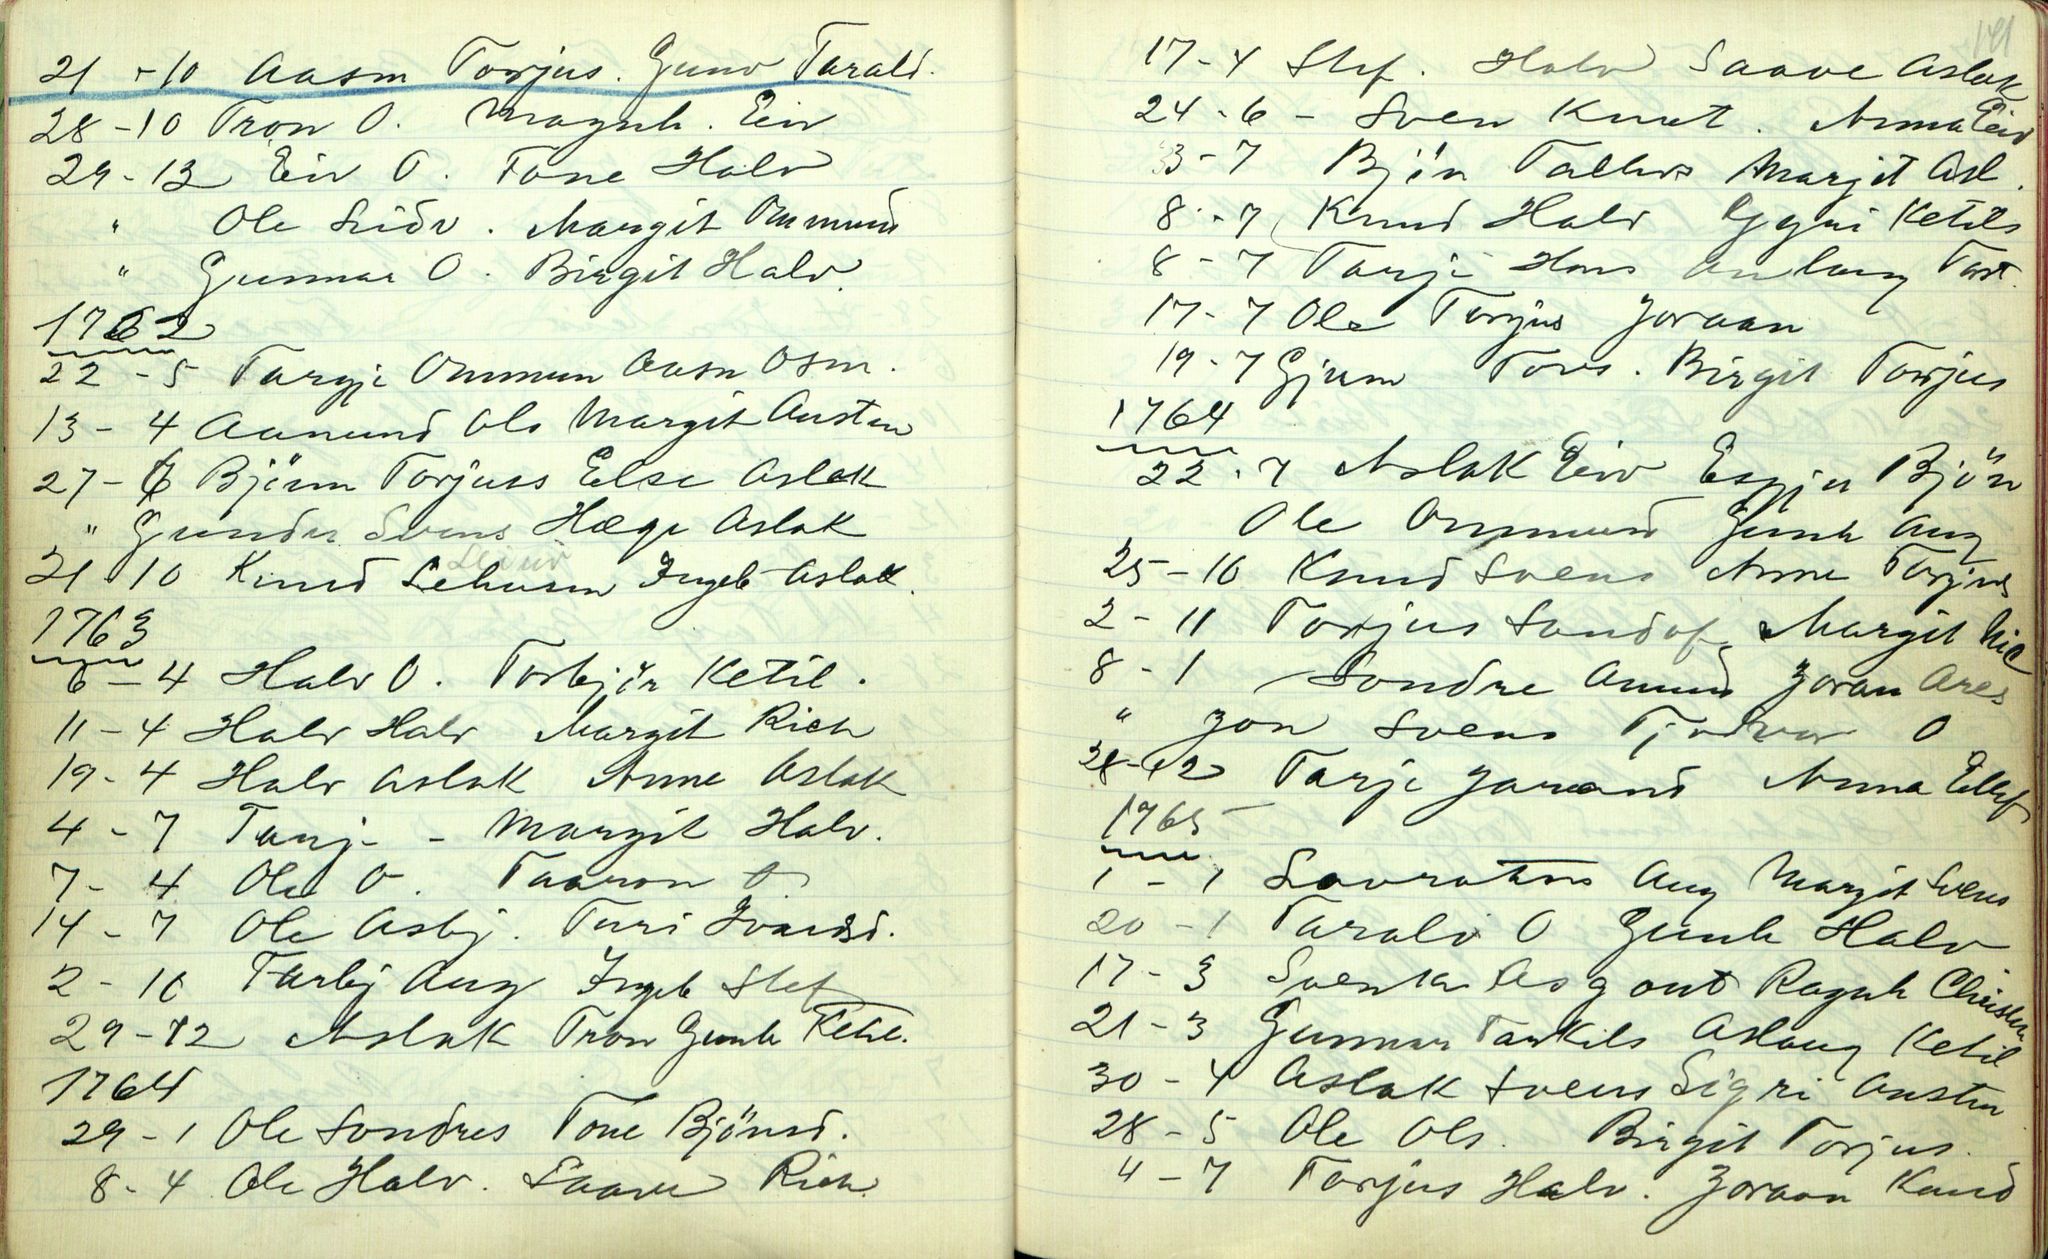 21 - 10 Aasm Torjus. Gunv Tarald.
28 - 10 Tron O. Magnh. Eiv
29 - 13 Eiv O. Tone Halv
" Ole Sidv. Margit Ommund
" Gunnar O. Birgit Halv.
1762
22 - 5 Targje Ommun Aasn Osm.
13 - 4 Aanund Ols Margit Austen
27 - 6 Björn Torjuss Else Aslak
" Gunder Svens Hæge Aslak
21 10 Knud Ingeb Aslak.
1763
6 - 4 Halv O. Torbjör Ketil.
11 - 4 Halv Halv Margit Rich
19 - 4 Halv Aslak Anne Aslak
4 - 7 Tarj - - Margit Halv.
7 - 4 Ole O. Taaron O
14 - 7 Ole Asbj. Turi
2 - 10 Tarbj Aug Ingeb Stef
29 - 12 Aslak Tron Gunh Ketil.
1764
29 - 1 Ole Sondres Tone Björnd.
8 - 4 Ole Halv. Saave Rich.
141
17 - 4 Stef. Halv Saave Aslak
24 - 6 - Sven Knut. Anna Eiv
3 - 7 Bjön Tallevs Margit Asl.
8 - 7 Knud Halv Gyri Ketils
8 - 7 Tarje Hans Anlaug Tort.
17 - 7 Ole Torjus Joraan
19 - 7 Gjurm Tovs. Birgit Torjus
1764
22 - 7 Aslak Eiv Espjer Björn
Ole Ommund Gunh Aug
25 - 10 Knud Svens Anne Torjus
2 - 11 Torjus Sondof. Margit Nic
8 - 1 Sondre Amund Joran Ares
" Jon Svens Tjodvor O
28 - 12 Tarje Jarand Anna Ellef
1765
1 - 1 Aug Margit Svens
20 - 1 Tarald O Gunh Halv
17 - 3 Svenke Asgout Ragnh Christen
21 - 3 Gunnar Tarkils Aslaug Ketil
30 - 4 Aslak Svens Sigri Austen
28 - 5 Ole Ols. Birgit Torjus.
4 - 7 Torjus Halv. Joraan Knud